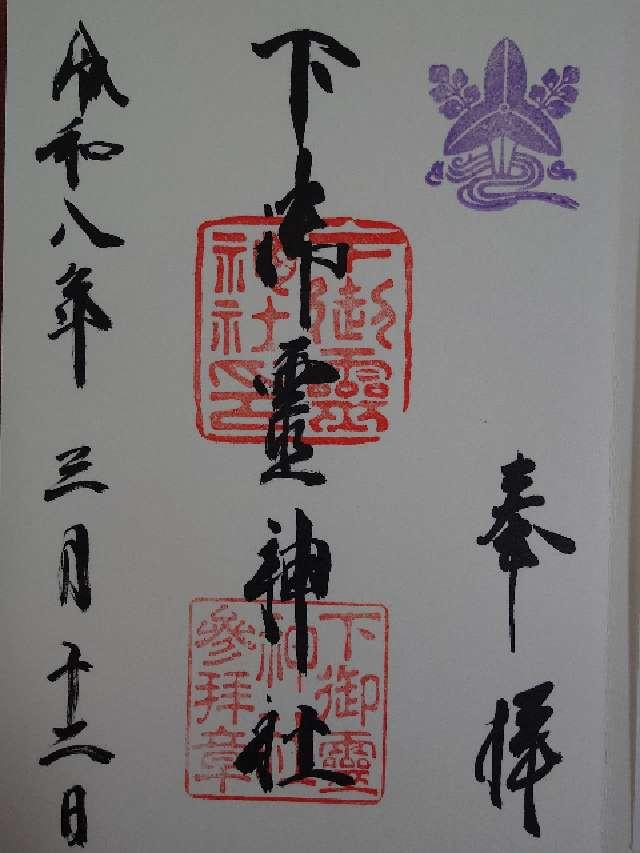 奉拝
下御霊神社
下御靈神社印
下御靈神社參拜章
令和八年 三月十二日